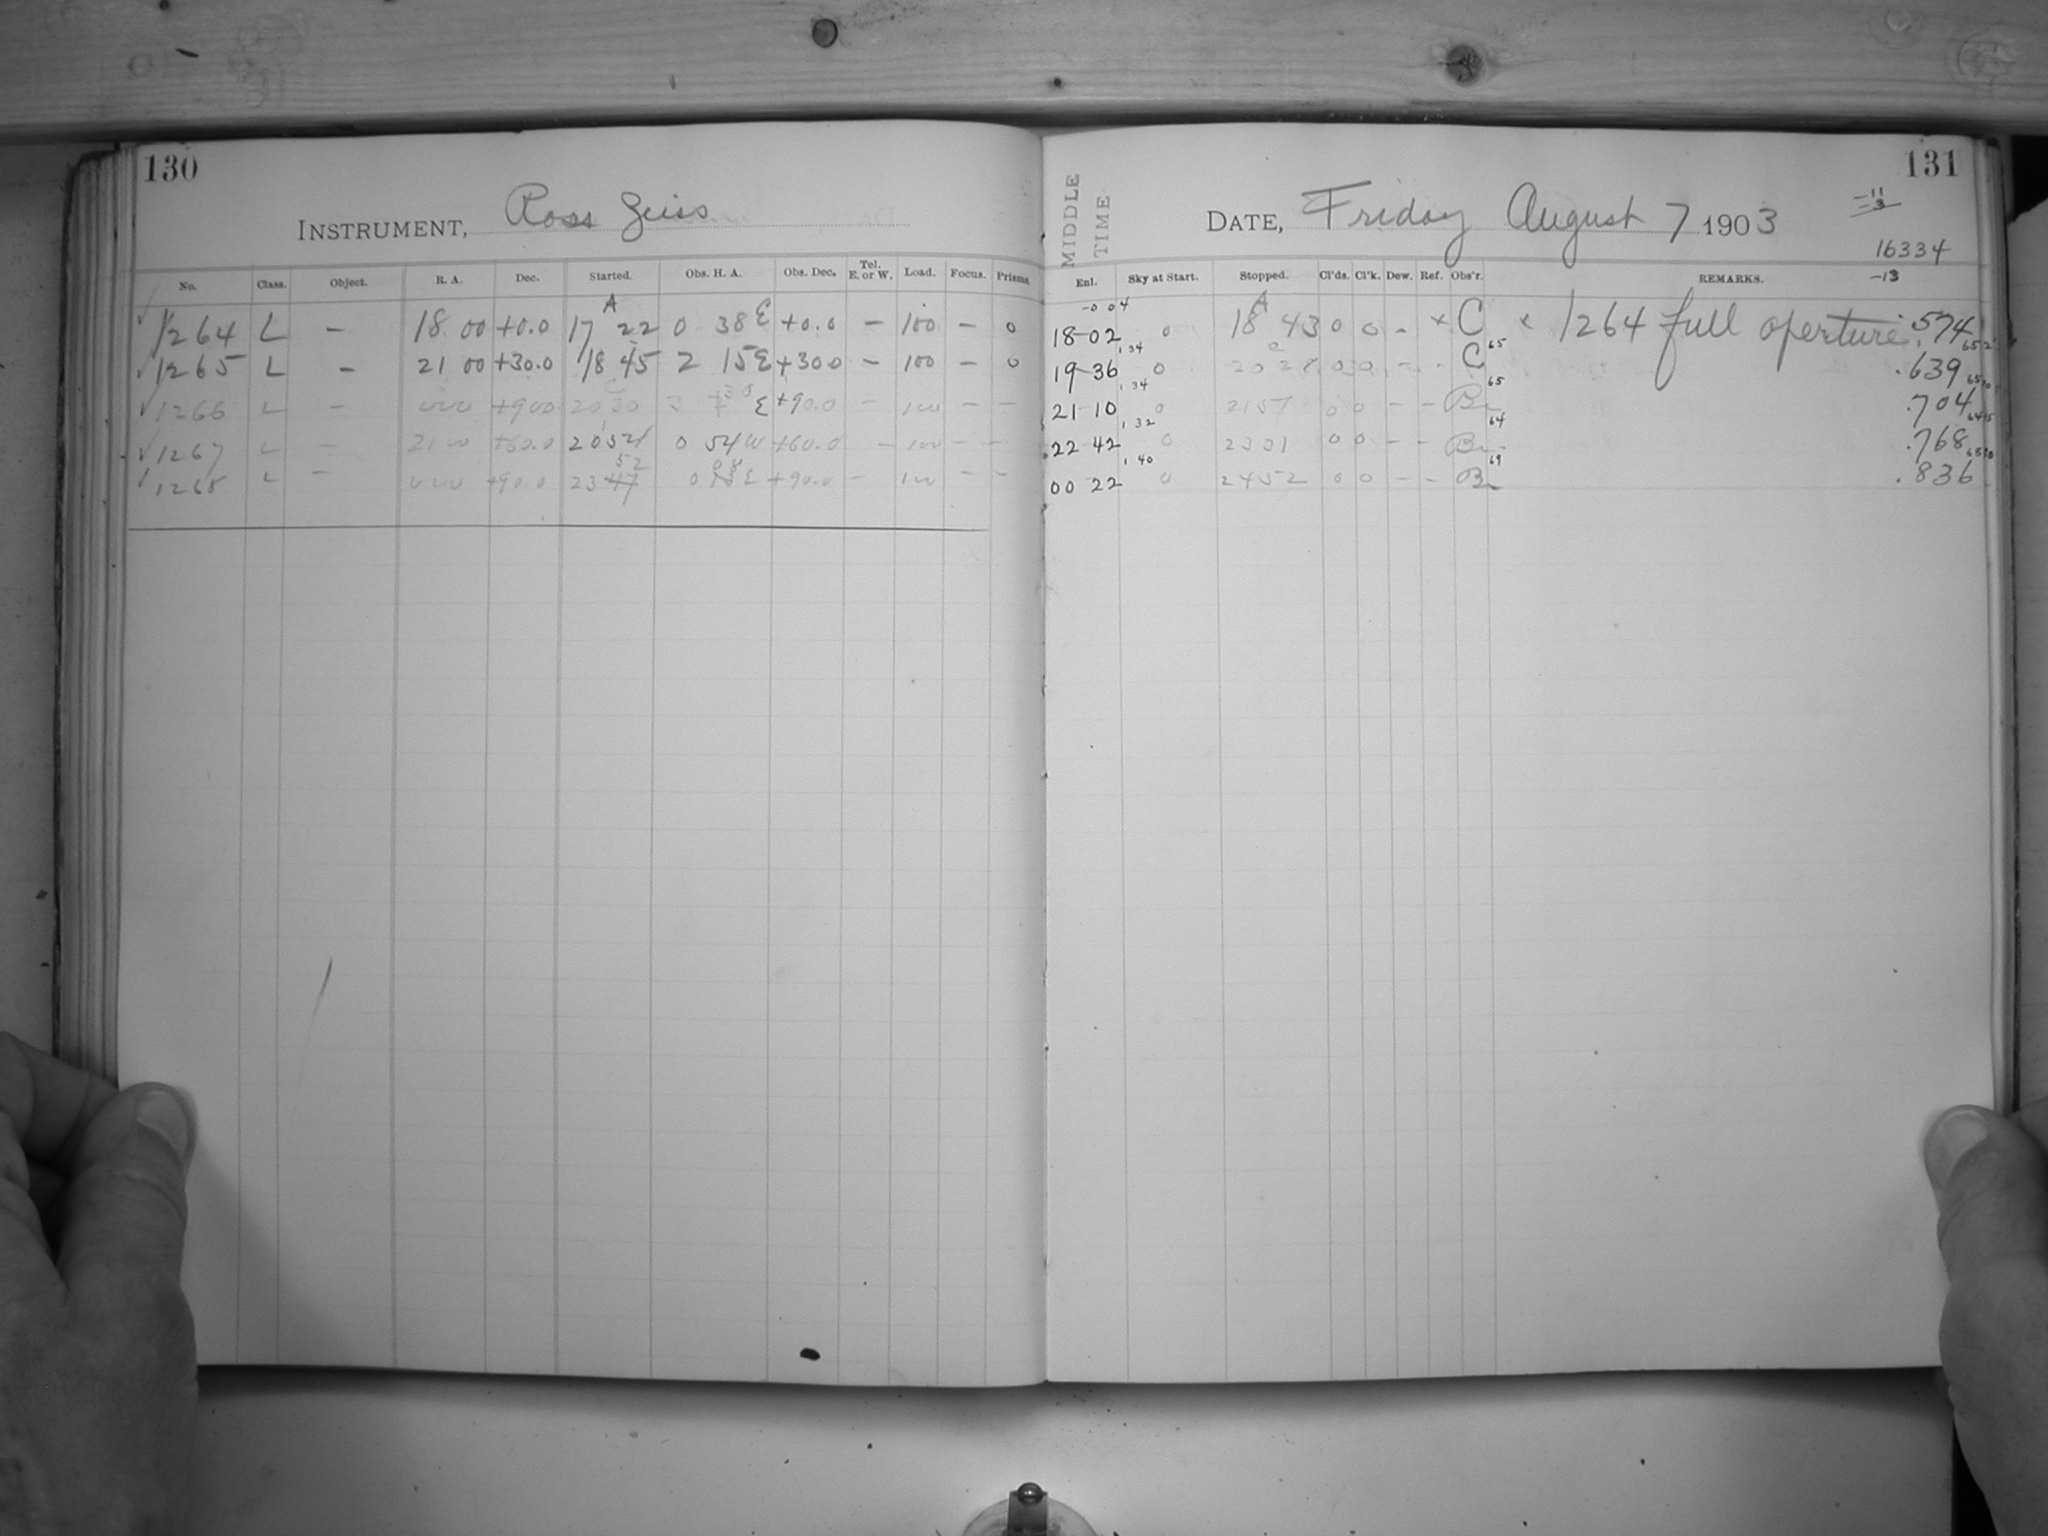 130
INSTRUMENT, Ross Zeiss
No. Class. Object. R. A. Dec. Started. Obs. H. A. Obs. Dec. Tel. E. or W. Load. Focus. Prisms.
A
1264 L - 18 00 +0.0 17 22 0 38 E +0.0 - 100 - 0
1265 L - 21 00 +30.0 18 45 2 15 E +30.0 - 100 - 0
1266 L - +90.0 20 30 E +90.0 - 100 - -
1267 L - 21 00 +60.0 0 54 W +60.0 - 100 - -
52
1268 L - +90.0 23 47 +90.0 - 100 - -
131
MIDDLE TIME
DATE, Friday August 7 1903
16334
Enl. Sky at Start. Stopped. Cl'ds. Cl'k. Dew. Ref. Obs'r. REMARKS. -13
-0 04
A
18-02 0 18 43 0 0 - × C × 1264 full aperture .574
1 34 65
19-36 0 0 0 - - C .639
1 34 65
21-10 0 21 57 0 0 - - Br .704
1 32 64
22 42 0 23 31 0 0 - - Br .768
1 40 69
00 22 0 24 52 0 0 - - Br .836